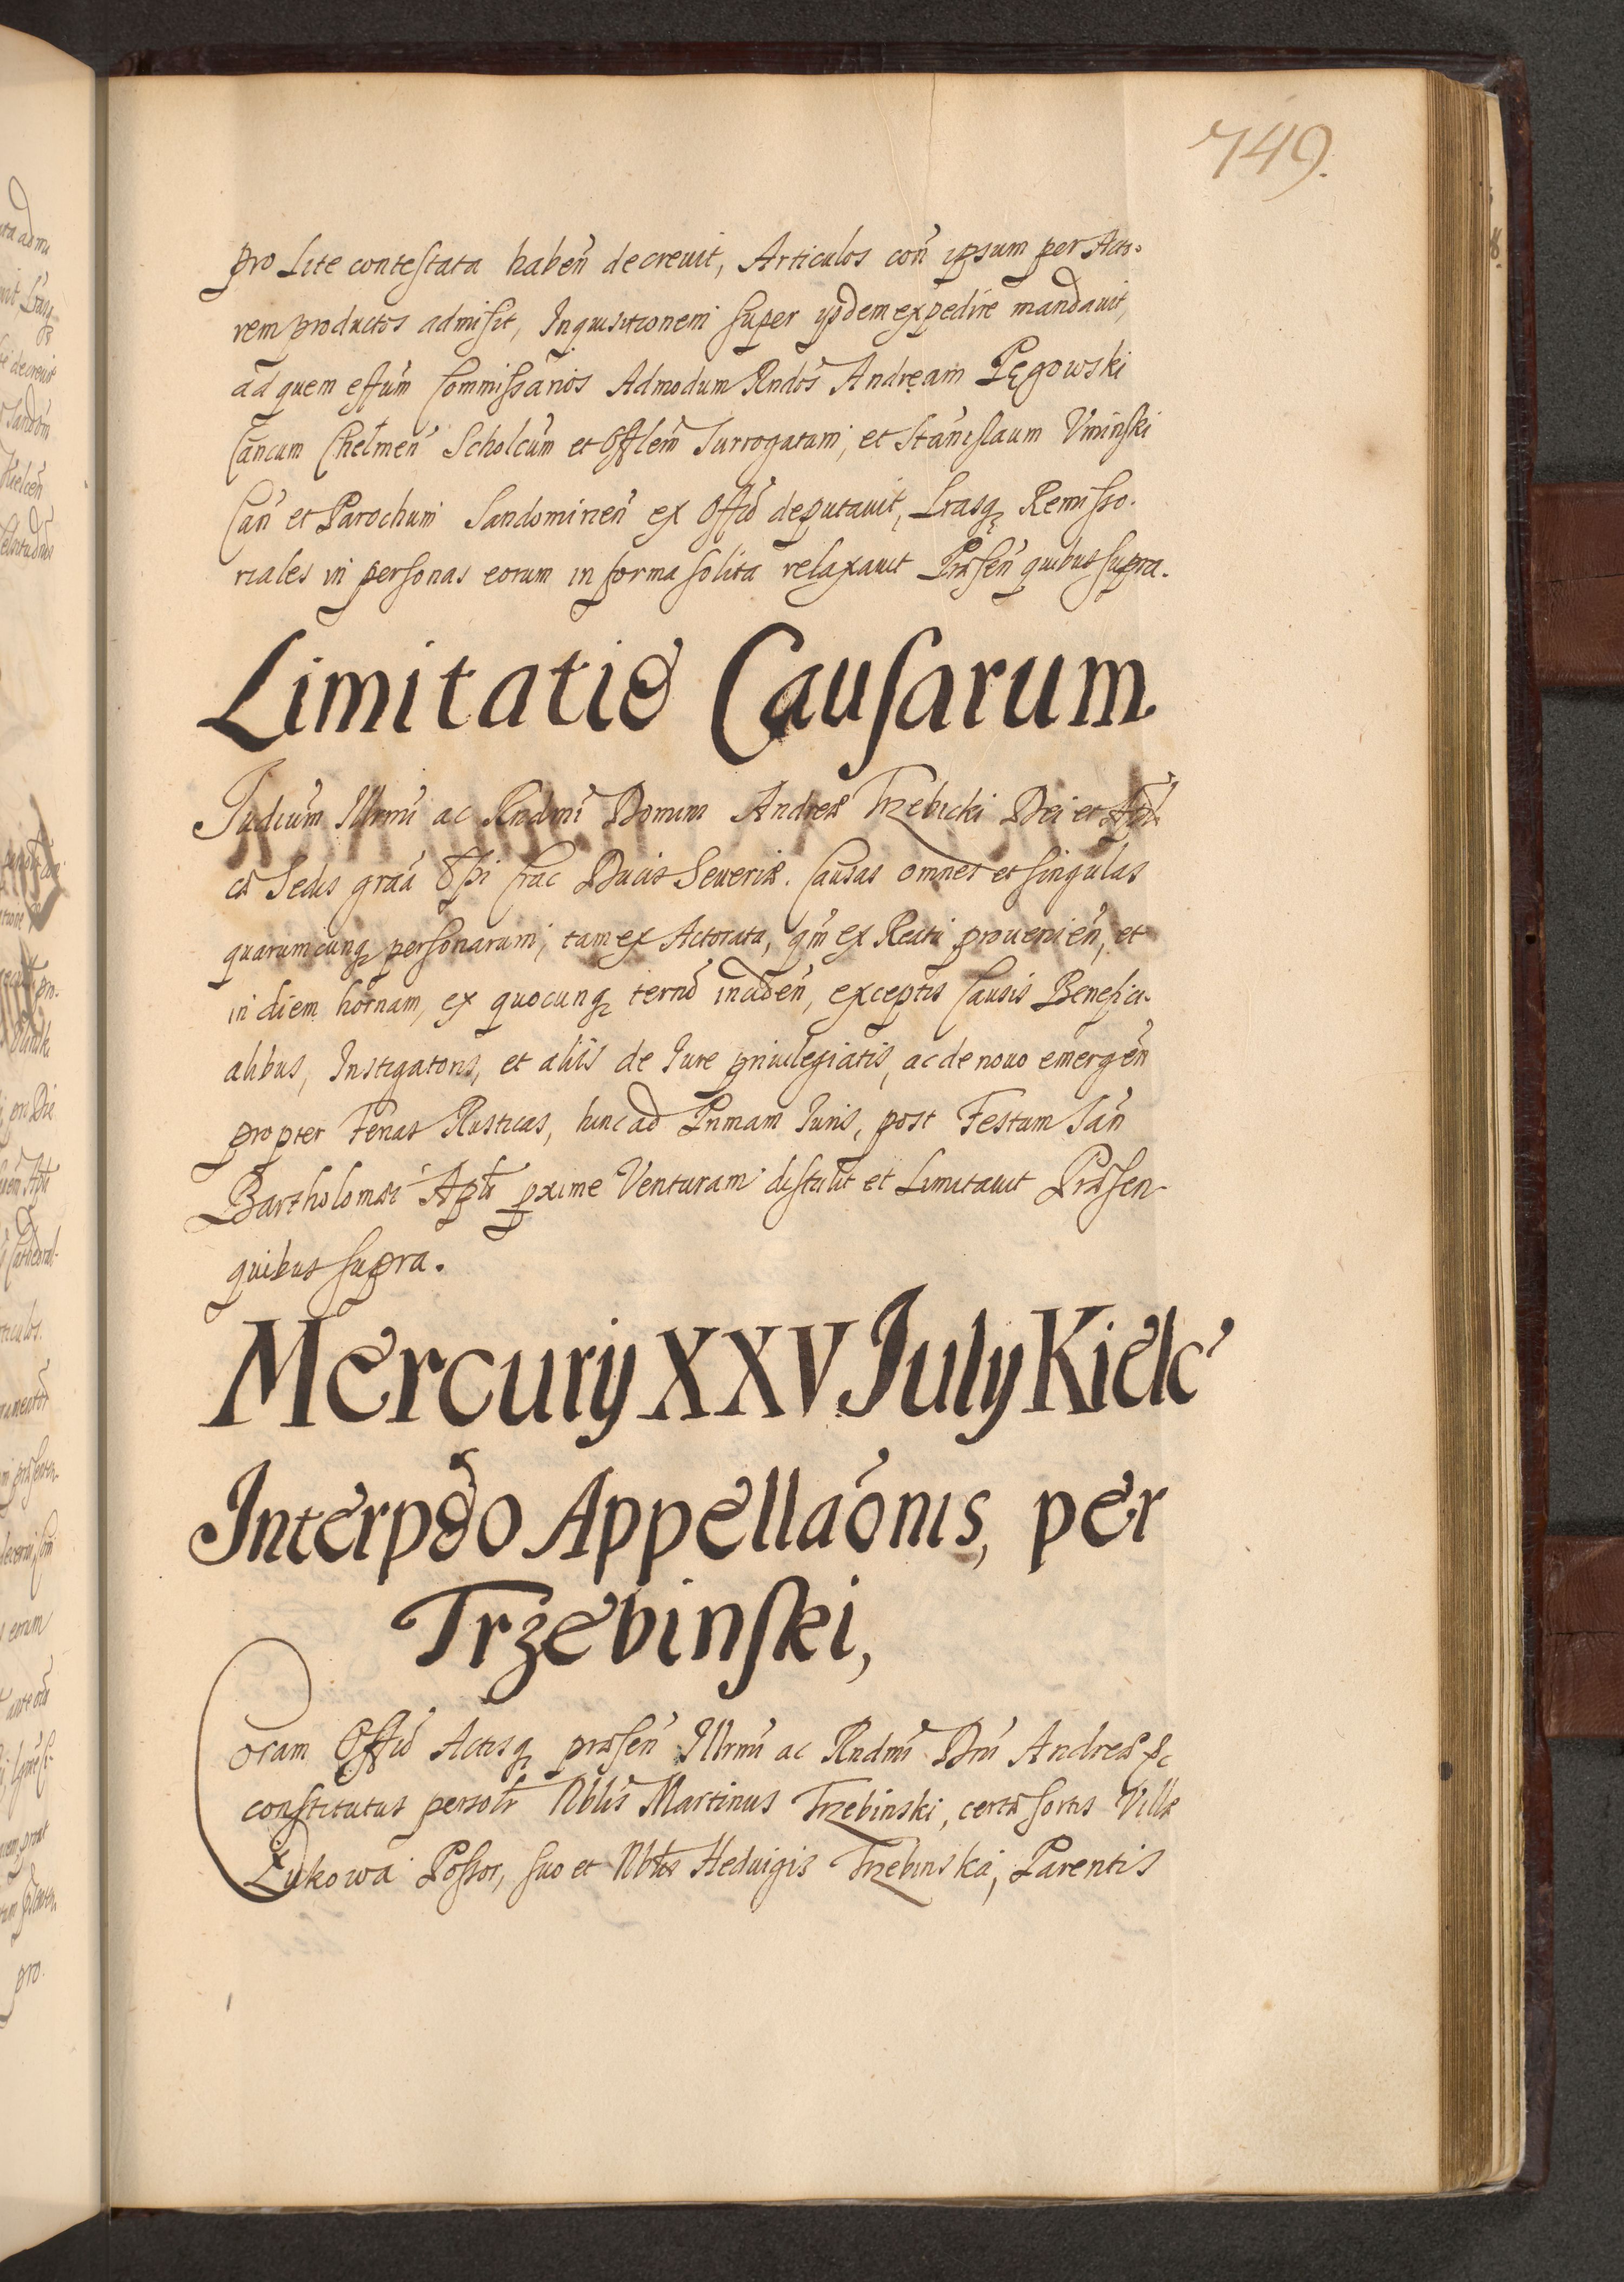 749.
pro Lite contestata haben̄ decreuit, Articulos con̄ ipsum per Acto-
rem productos admisit, Inquisitionem super ysdem expedire mandauit,
ad quem effūm Commissarios Admodum Rndos Andream Pęgowski
Cancum Chelmen̄ Scholcūm et Offlem Surrogatum, et Stanislaum Vninski
Can̄ et Parochum Sandomirien̄ ex Offō deputauit, Lrasq Remisso-
riales in personas eorum in forma solita relaxauit Præsen̄ quibus supra.
Limitatio Causarum
Judicūm Illrmi ac Rndmi Domini Andreæ Trzebicki Dei et Apli-
cæ Sedis grāa Eppi Crac Ducis Seueriæ. Causas omnes et singulas
quarumcunq personarum, tam ex Actoratu, qm̄ ex Reatu prouenien̄, et
in diem hornam, ex quocunq termō inciden̄, exceptis Causis Benefici-
alibus, Instigatoris, et aliis de Iure priuilegiatis, ac de nouo emergen̄
propter Ferias Rusticas, hinc ad Primam Iuris, post Festum San̄
Bartholomæi Apli pxime Venturam distulit et Limitauit Præsen-
quibus supra.
Mercurij XXV July Kielc
Interpōo Appellaōnis, per
Trzebinski,
Coram Offō Actisq præsen̄ Illrmi ac Rndmi Dni Andreæ &c
constitutus persolr Nblis Martinus Trzebinski, certæ sortis Villæ
Lukowa Possor, suo et Nblis Heduigis Trzebinska, Parentis